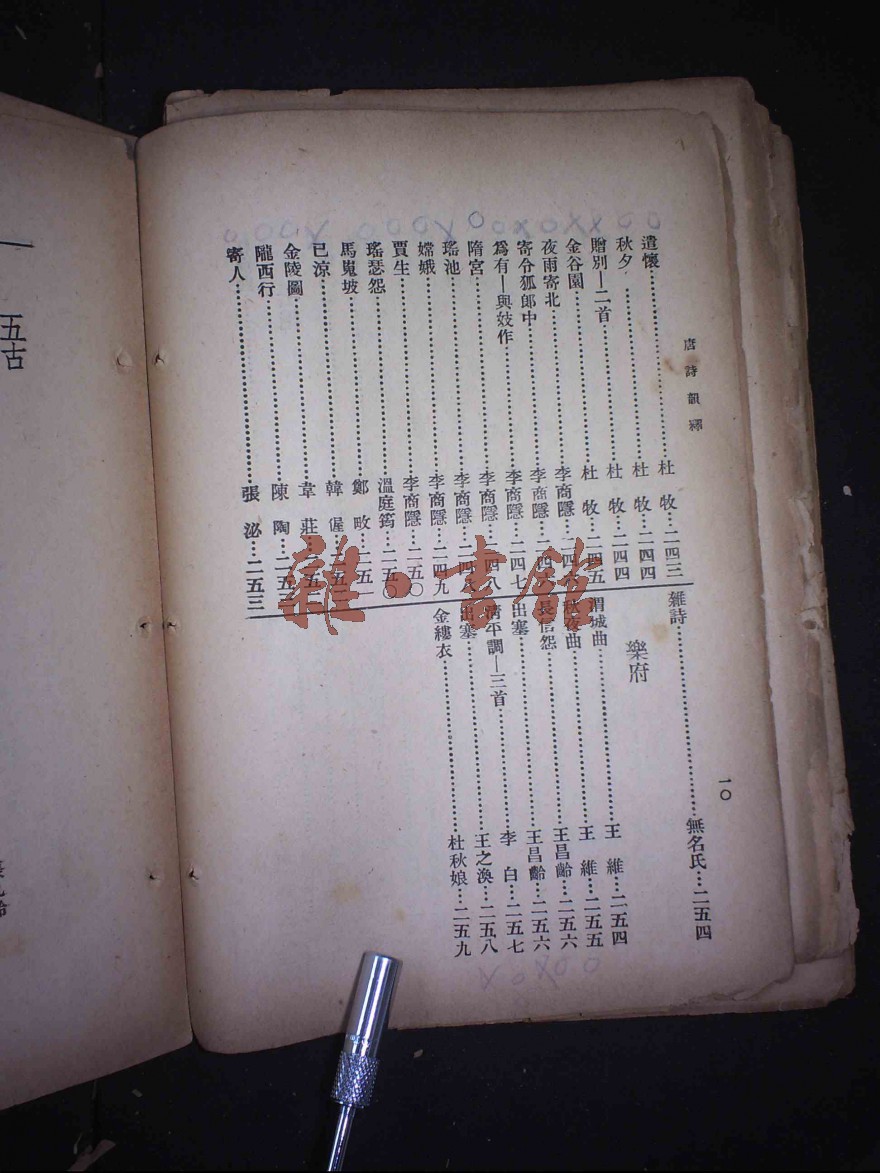 唐詩韻釋
一〇
遣懷⋯⋯杜牧⋯二四三
秋夕⋯⋯杜牧⋯二四四
贈別—二首⋯⋯杜牧⋯二四四
金谷園⋯⋯杜牧⋯二四五
夜雨寄北⋯⋯李商隱⋯二四
寄令狐郎中⋯⋯李商隱⋯二四
爲有—與妓作⋯⋯李商隱⋯二四七
隋宮⋯⋯李商隱⋯二四八
瑤池⋯⋯李商隱⋯二四八
嫦娥⋯⋯李商隱⋯二四九
賈生⋯⋯李商隱⋯二五〇
瑤瑟怨⋯⋯溫庭筠⋯二五〇
馬嵬坡⋯⋯鄭畋⋯二五一
已涼⋯⋯韓偓⋯二五
金陵圖⋯⋯韋莊⋯二五
隴西行⋯⋯陳陶⋯二五
寄人⋯⋯張泌⋯二五三
雜詩⋯⋯無名氏⋯二五四
樂府
渭城曲⋯⋯王維⋯二五四
秋夜曲⋯⋯王維⋯二五五
長信怨⋯⋯王昌齡⋯二五六
出塞⋯⋯王昌齡⋯二五六
清平調—三首⋯⋯李白⋯二五七
出塞⋯⋯王之渙⋯二五八
金縷衣⋯⋯杜秋娘⋯二五九
五古
雜·書館